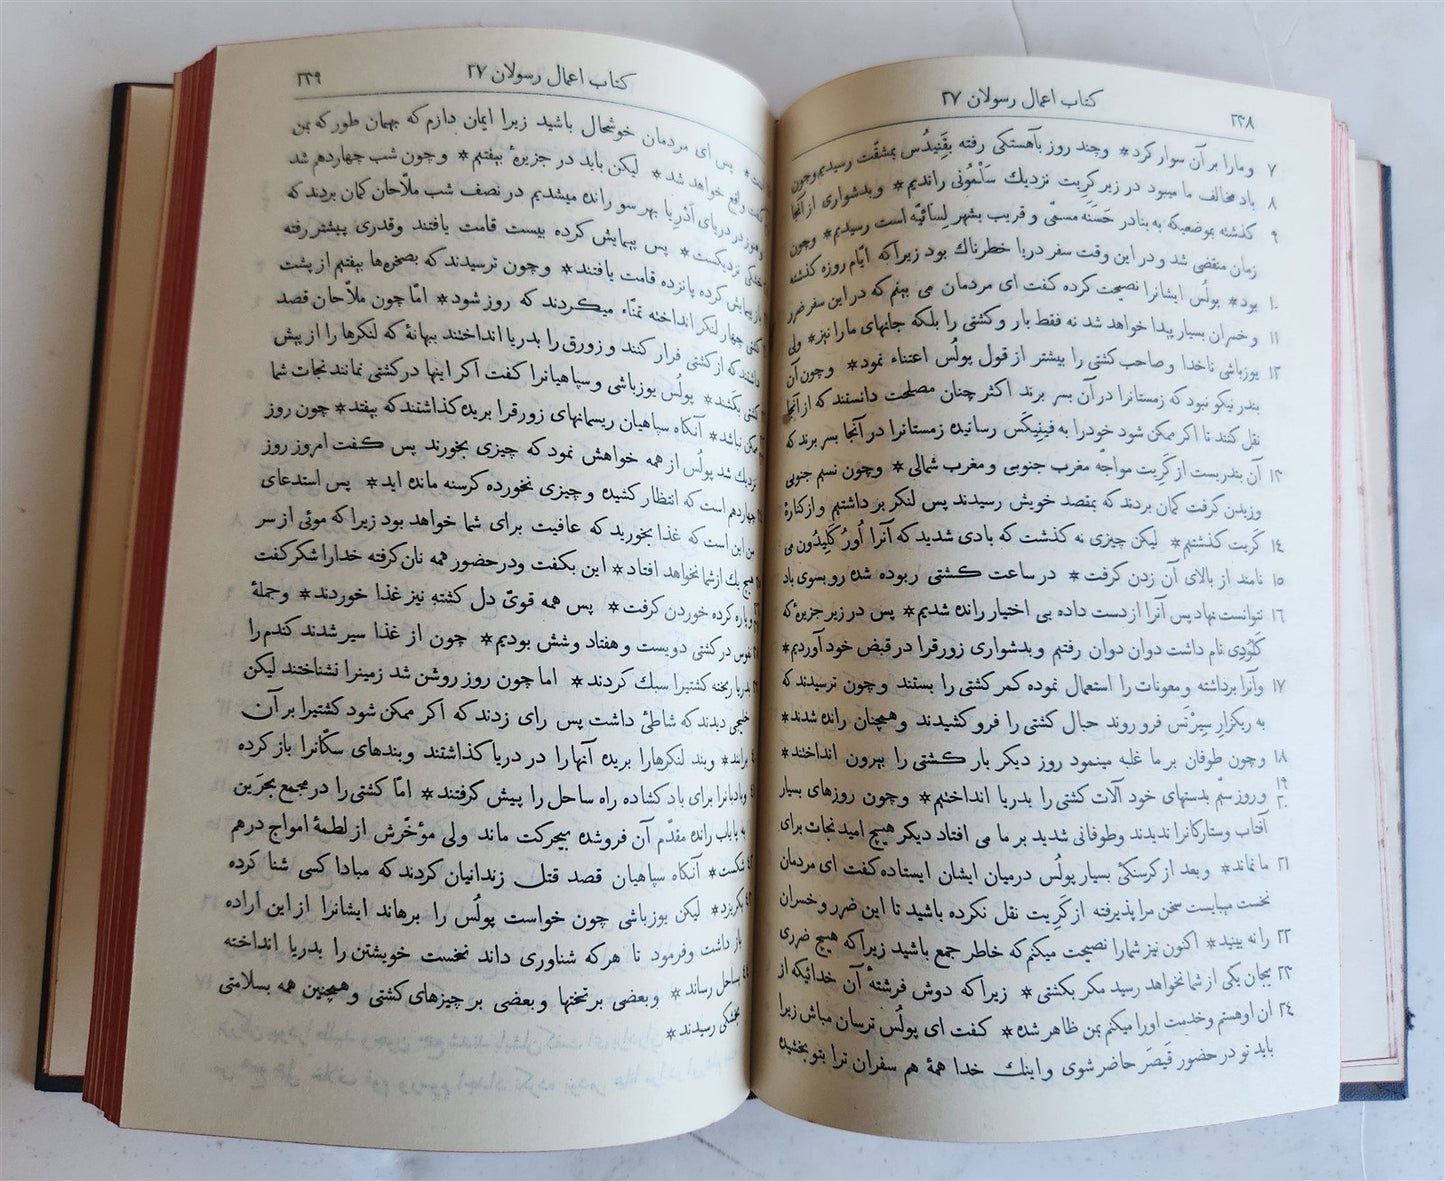 ۲۳۸
کتاب اعمال رسولان ۲۷
۷ ومارا بر آن سوار کرد* وچند روز بآهستکی رفته بقَنِیدُس بمشقّت رسیدیم وچون
۸ باد مخالف ما میبود در زیر کِرِیت نزدیك سَلْمُونی راندیم* وبدشواری از آنجا
۹ کذشته بموضعیکه به بنادر حَسَنَه مسمّی وقریب بشهر لِسَائِیَّه است رسیدیم* وچون
زمان منقضی شد ودر این وقت سفر دریا خطرناك بود زیراکه ایّام روزه کذشته
۱۰ بود* پولُس ایشانرا نصیحت کرده کفت ای مردمان می بینم که در این سفر ضرر
۱۱ وخسران بسیار پیدا خواهد شد نه فقط بار وکشتی را بلکه جانهای مارا نیز* ولی
۱۲ یوزباشی ناخدا وصاحب کشتی را بیشتر از قول پولُس اعتناء نمود* وچون آن
بندر نیکو نبود که زمستانرا در آن بسر برند اکثر چنان مصلحت دانستند که از آنجا
نقل کنند تا اکر ممکن شود خودرا به فینِیکَس رسانیده زمستانرا در آنجا بسر برند که
۱۳ آن بندریست از کَرِیت مواجه مغرب جنوبی ومغرب شمالی* وچون نسیم جنوبی
وزیدن کرفت کمان بردند که بمقصد خویش رسیدند پس لنکر بر داشتیم واز کنارهٔ
۱۴ کَرِیت کذشتیم* لیکن چیزی نه کذشت که بادی شدید که آنرا اُورُکَلِیدُون می
۱۵ نامند از بالای آن زدن کرفت* در ساعت کشتی ربوده شده رو بسوی باد
۱۶ نتوانست نهاد پس آنرا از دست داده بی اختیار رانده شدیم* پس در زیر جزیرهٔ که
کَلَوْدِی نام داشت دوان دوان رفتیم وبدشواری زورقرا در قبض خود آوردیم*
۱۷ وآنرا برداشته ومعونات را استعمال نموده کمر کشتی را بستند وچون ترسیدند که
به ریکزار سِیرْتَس فرو روند حبال کشتی را فرو کشیدند وهمچنان رانده شدند*
۱۸ وچون طوفان بر ما غلبه مینمود روز دیکر بار کشتی را بیرون انداختند*
۱۹ ۲۰ وروز سیّم بدستهای خود آلات کشتی را بدریا انداختیم* وچون روزهای بسیار
آفتاب وستارکانرا ندیدند وطوفانی شدید بر ما می افتاد دیکر هیچ امید نجات برای
۲۱ ما نماند* وبعد از کرسنکئ بسیار پولُس درمیان ایشان ایستاده کفت ای مردمان
نخست میبایست سخن مرا پذیرفته از کَرِیت نقل نکرده باشید تا این ضرر وخسران
۲۲ را نه بینید* اکنون نیز شمارا نصیحت میکنم که خاطر جمع باشید زیراکه هیچ ضرری
۲۳ بجان یکی از شما نخواهد رسید مکر بکشتی* زیراکه دوش فرشتهٔ آن خدائیکه از
۲۴ ان اوهستم وخدمت اورا میکنم بمن ظاهر شده* کفت ای پولُس ترسان مباش زیرا
باید تو در حضور قَیصَر حاضر شوی واینك خدا همهٔ هم سفران ترا بتو بخشیده
کتاب اعمال رسولان ۲۷
۲۳۹
است* پس ای مردمان خوشحال باشید زیرا ایمان دارم که بهمان طور که بمن
کفت واقع خواهد شد* لیکن باید در جزیرهٔ بیفتیم* وچون شب چهاردهم شد
وهنوز در دریای آدْرِیا بهر سو رانده میشدیم در نصف شب ملّاحان کمان بردند که
خشکی نزدیکست* پس پیمایش کرده بیست قامت یافتند وقدری پیشتر رفته
باز پیمایش کرده پانزده قامت یافتند* وچون ترسیدند که بصخرهها بیفتیم از پشت
کشتی چهار لنکر انداخته تمنّاء میکردند که روز شود* امّا چون ملاّحان قصد
داشتند که از کشتی فرار کنند وزورق را بدریا انداختند ببهانهٔ که لنکرها را از پیش
کشتی بکشند* پولُس یوزباشی وسپاهیانرا کفت اکر اینها در کشتی نمانند نجات شما
ممکن نباشد* آنکاه سپاهیان ریسمانهای زورقرا بریده کذاشتند که بیفتد* چون روز
نزدیك شد پولُس از همه خواهش نمود که چیزی بخورند پس کفت امروز روز
چهاردهم است که انتظار کشیده وچیزی نخورده کرسنه مانده اید* پس استدعای
من این است که غذا بخورید که عافیت برای شما خواهد بود زیراکه موئی از سر
هیچ یك از شما نخواهد افتاد* این بکفت ودر حضور همه نان کرفته خدارا شکر کفت
وپاره کرده خوردن کرفت* پس همه قوئ دل کشته نیز غذا خوردند* وجملهٔ
نفوس در کشتی دویست وهفتاد وشش بودیم* چون از غذا سیر شدند کندم را
بدریا ریخته کشتیرا سبك کردند* اما چون روز روشن شد زمینرا نشناختند لیکن
خلیجی دیدند که شاطئ داشت پس رای زدند که اکر ممکن شود کشتیرا بر آن
برانند* وبند لنکرهارا بریده آنهارا در دریا کذاشتند وبندهای سکّانرا باز کرده
وبادبانرا برای باد کشاده راه ساحل را پیش کرفتند* امّا کشتی را در مجمع بحرَین
به پایاب رانده مقدّم آن فروشده بیحرکت ماند ولی مؤخّرش از لطمهٔ امواج درهم
شکست* آنکاه سپاهیان قصد قتل زندانیان کردند که مبادا کسی شنا کرده
بکریزد* لیکن یوزباشی چون خواست پولُس را برهاند ایشانرا از این اراده
باز داشت وفرمود تا هرکه شناوری داند نخست خویشتن را بدریا انداخته
بساحل رساند* وبعضی بر تختها وبعضی بر چیزهای کشتی وهمچنین همه بسلامتی
بخشکی رسیدند*